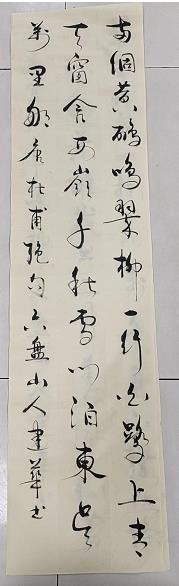 两個黄鹂鳴翠柳一行白鹭上青
天窗含西嶺千秋雪门泊東吴
萬里船唐杜甫絶句六盤山人建華书